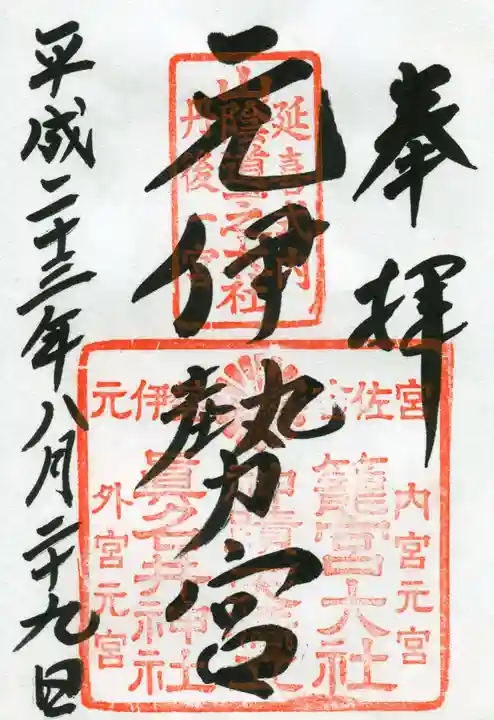 奉拝
元伊勢宮
平成二十三年八月二十九日
延喜式内
山陰道之大社
丹後一宮
宮佐
元伊
内宮元宮
籠宮大社
眞名井神社
外宮元宮